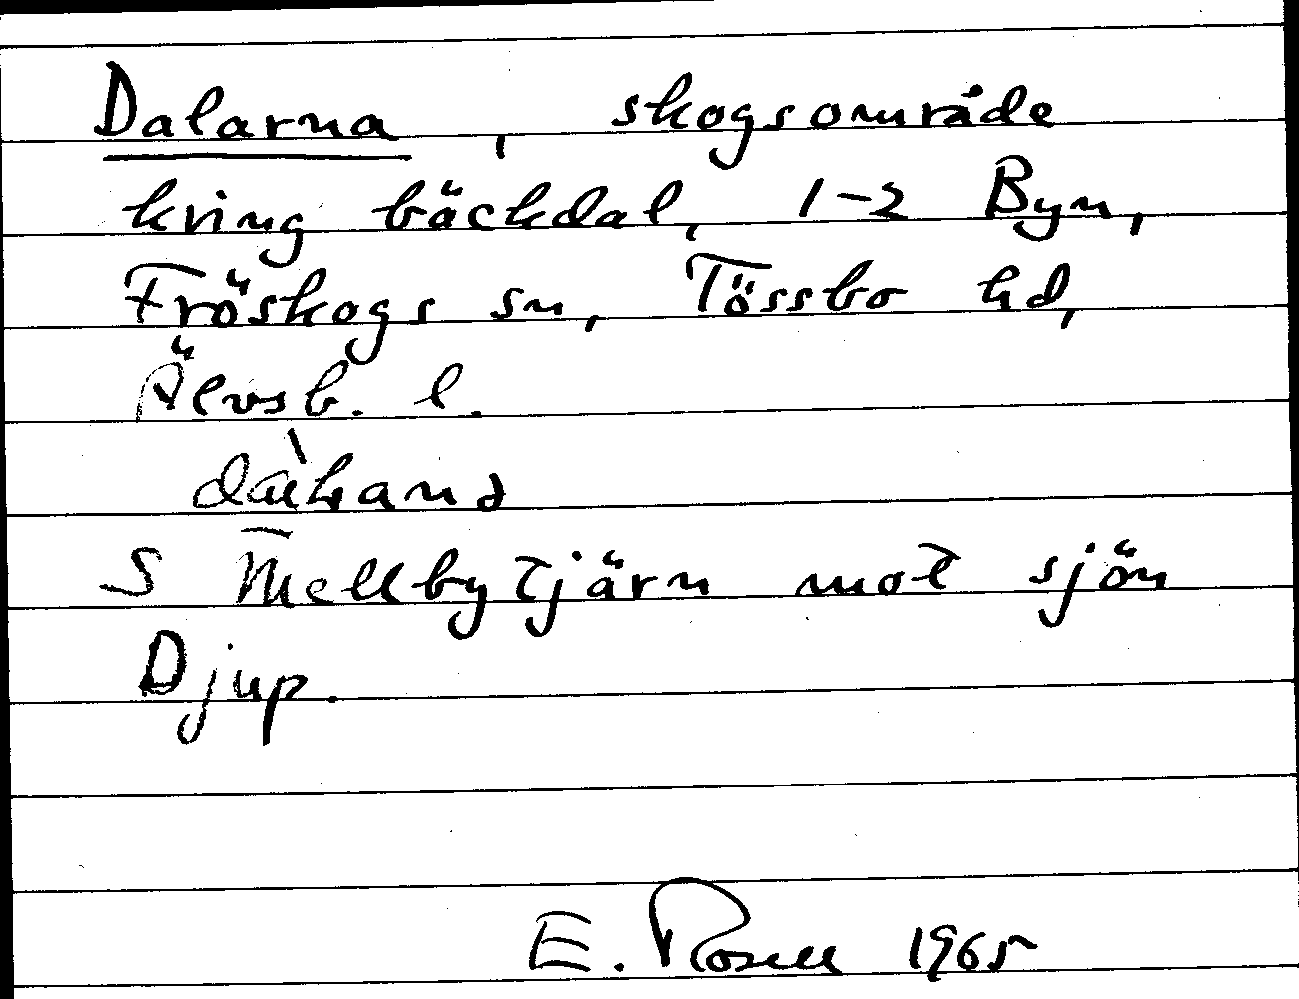 Dalarna, skogsområde
kring bäckdal, 1-2 Byn,
Fröskogs sn, Tössbo hd,
Älvsb. l.
dàhanɑ
S Mellbytjärn mot sjön
Djup.
E. Rosell 1965